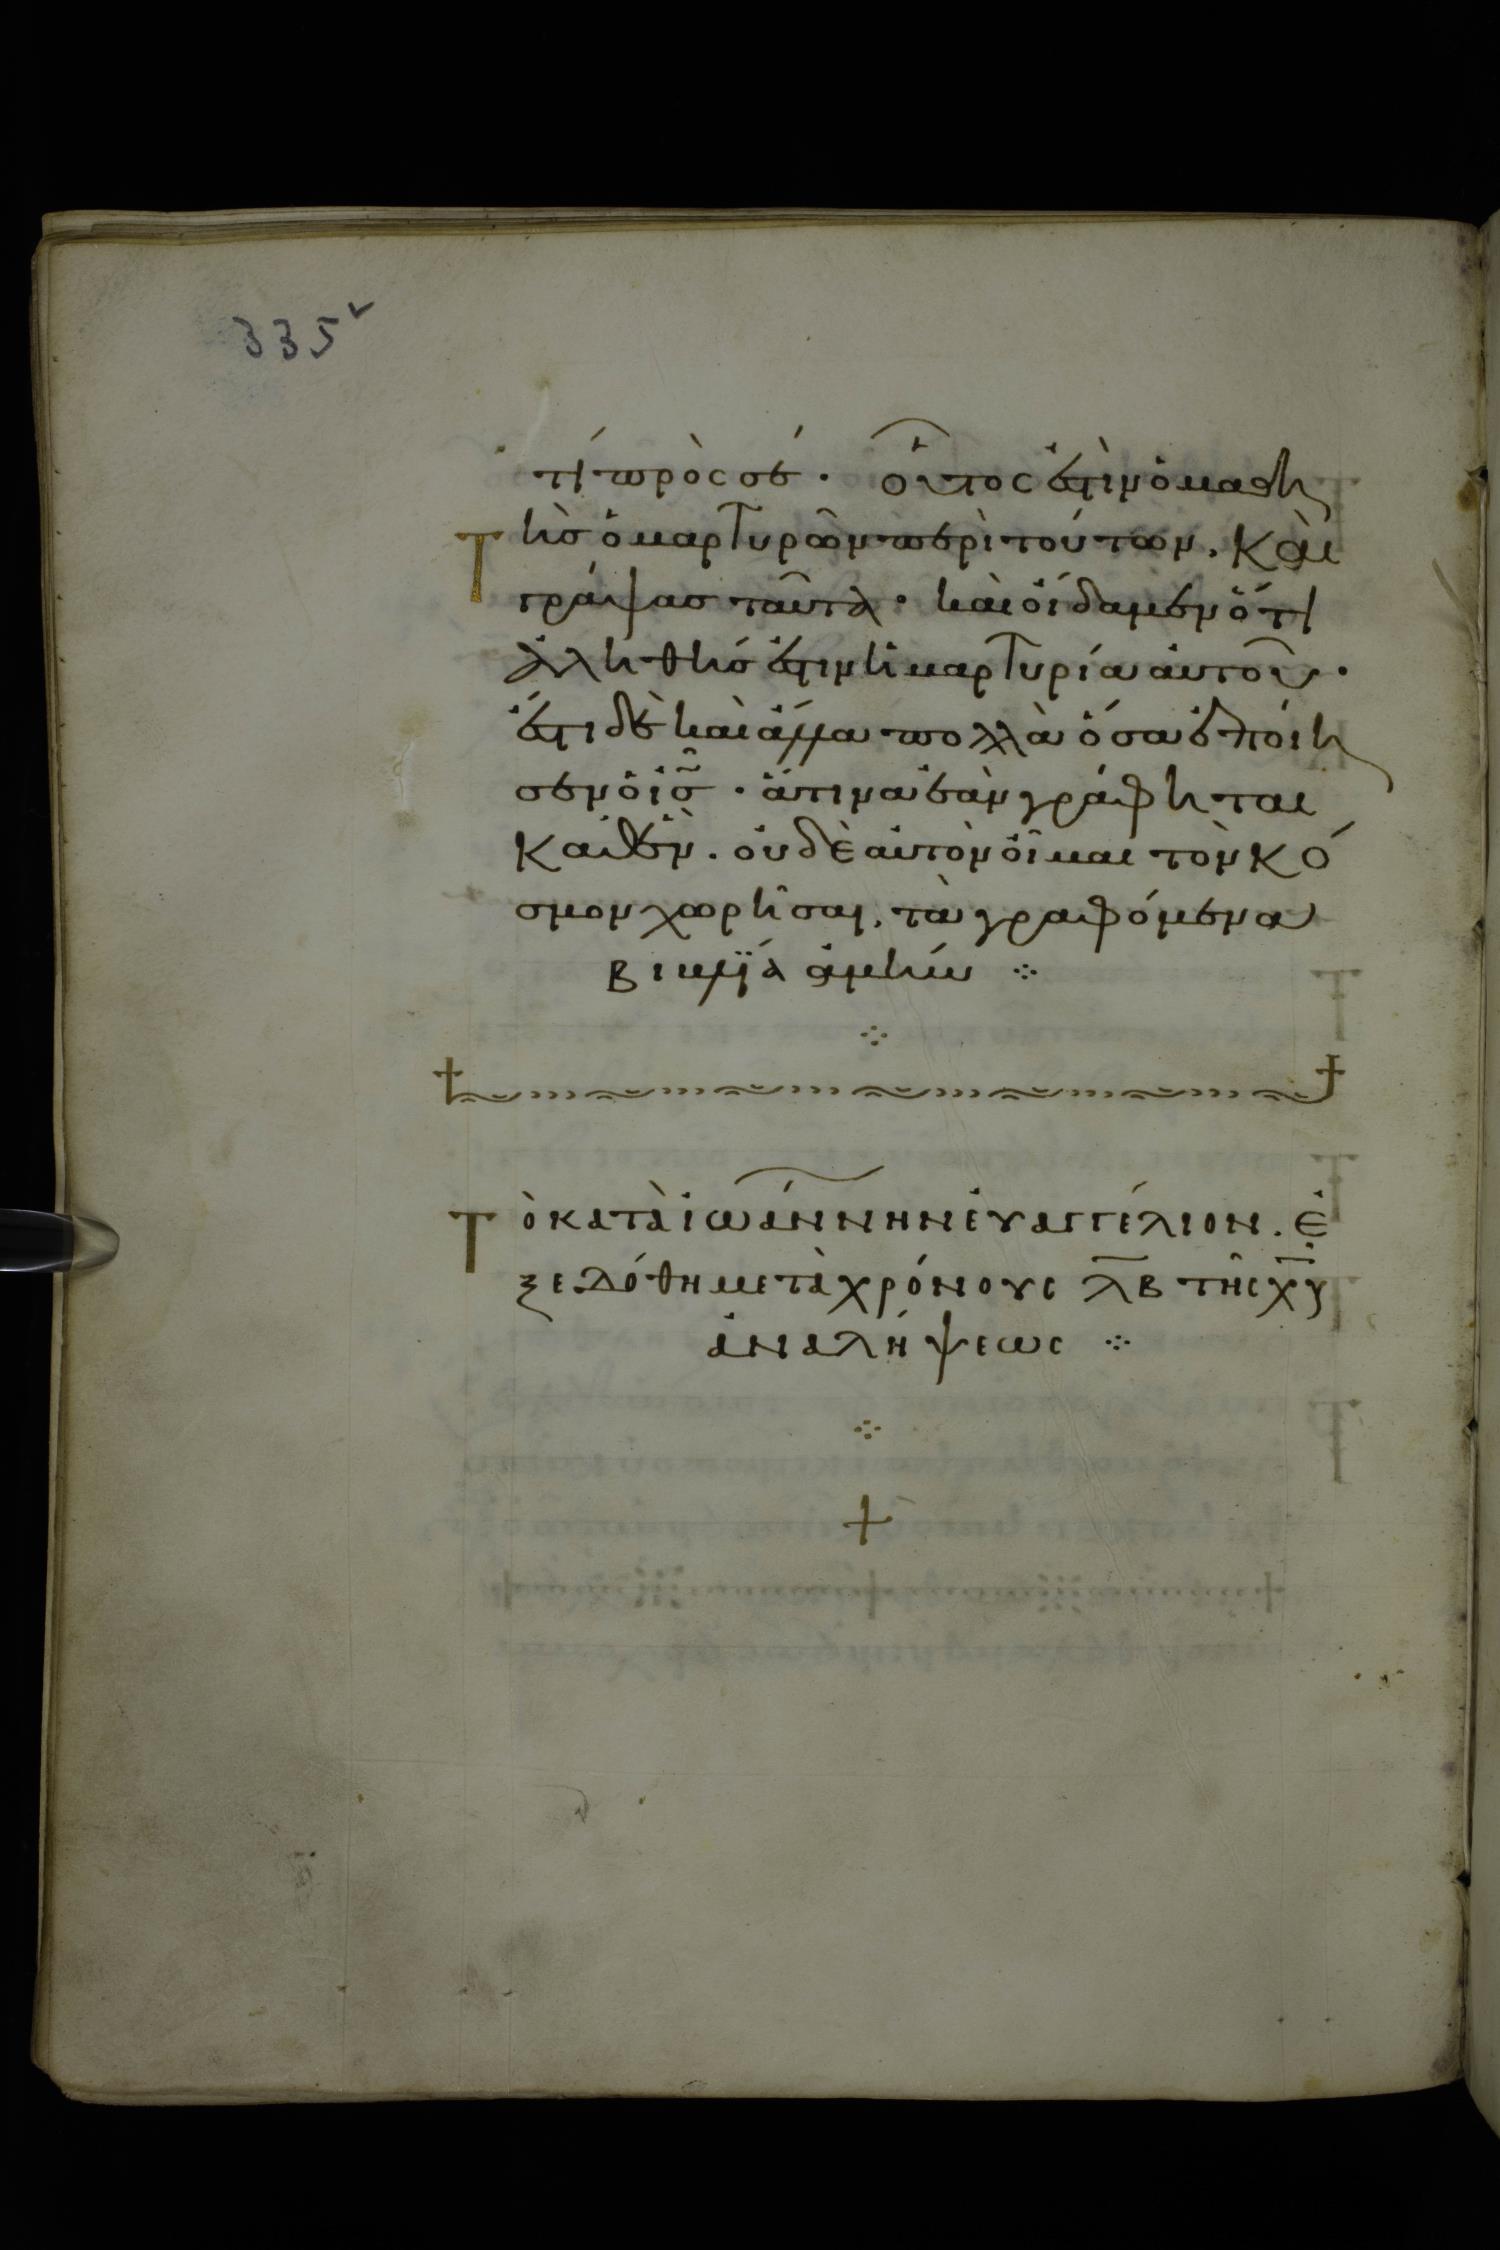 335v
τί πρὸς σέ · οὗτος ἐστὶν ὁ μαθη
τὴς ὁ μαρτυρῶν περὶ τούτων. καὶ
γράψας ταῦτα · καὶ οἴδαμεν ὅτι
ἀληθής ἐστιν ἡ μαρτυρία αὐτοῦ ·
ἔστι δὲ καὶ ἄλλα πολλὰ ὅσα ἐποίη
σεν ὁ ισ̅ · ἅτινα ἐὰν γράφηται
καθἓν. οὐδὲ αὐτὸν οἶμαι τὸν κό
σμον χωρῆσαι. τὰ γραφόμενα
βιβλία ἀμήν ⁘
Τὸ κατὰ ἰωάννην εὐαγγέλιον. ἐ
ξεδόθη μετὰ χρόνους λβ̅ τῆς χ̅υ̅
ἀναλήψεως ⁘